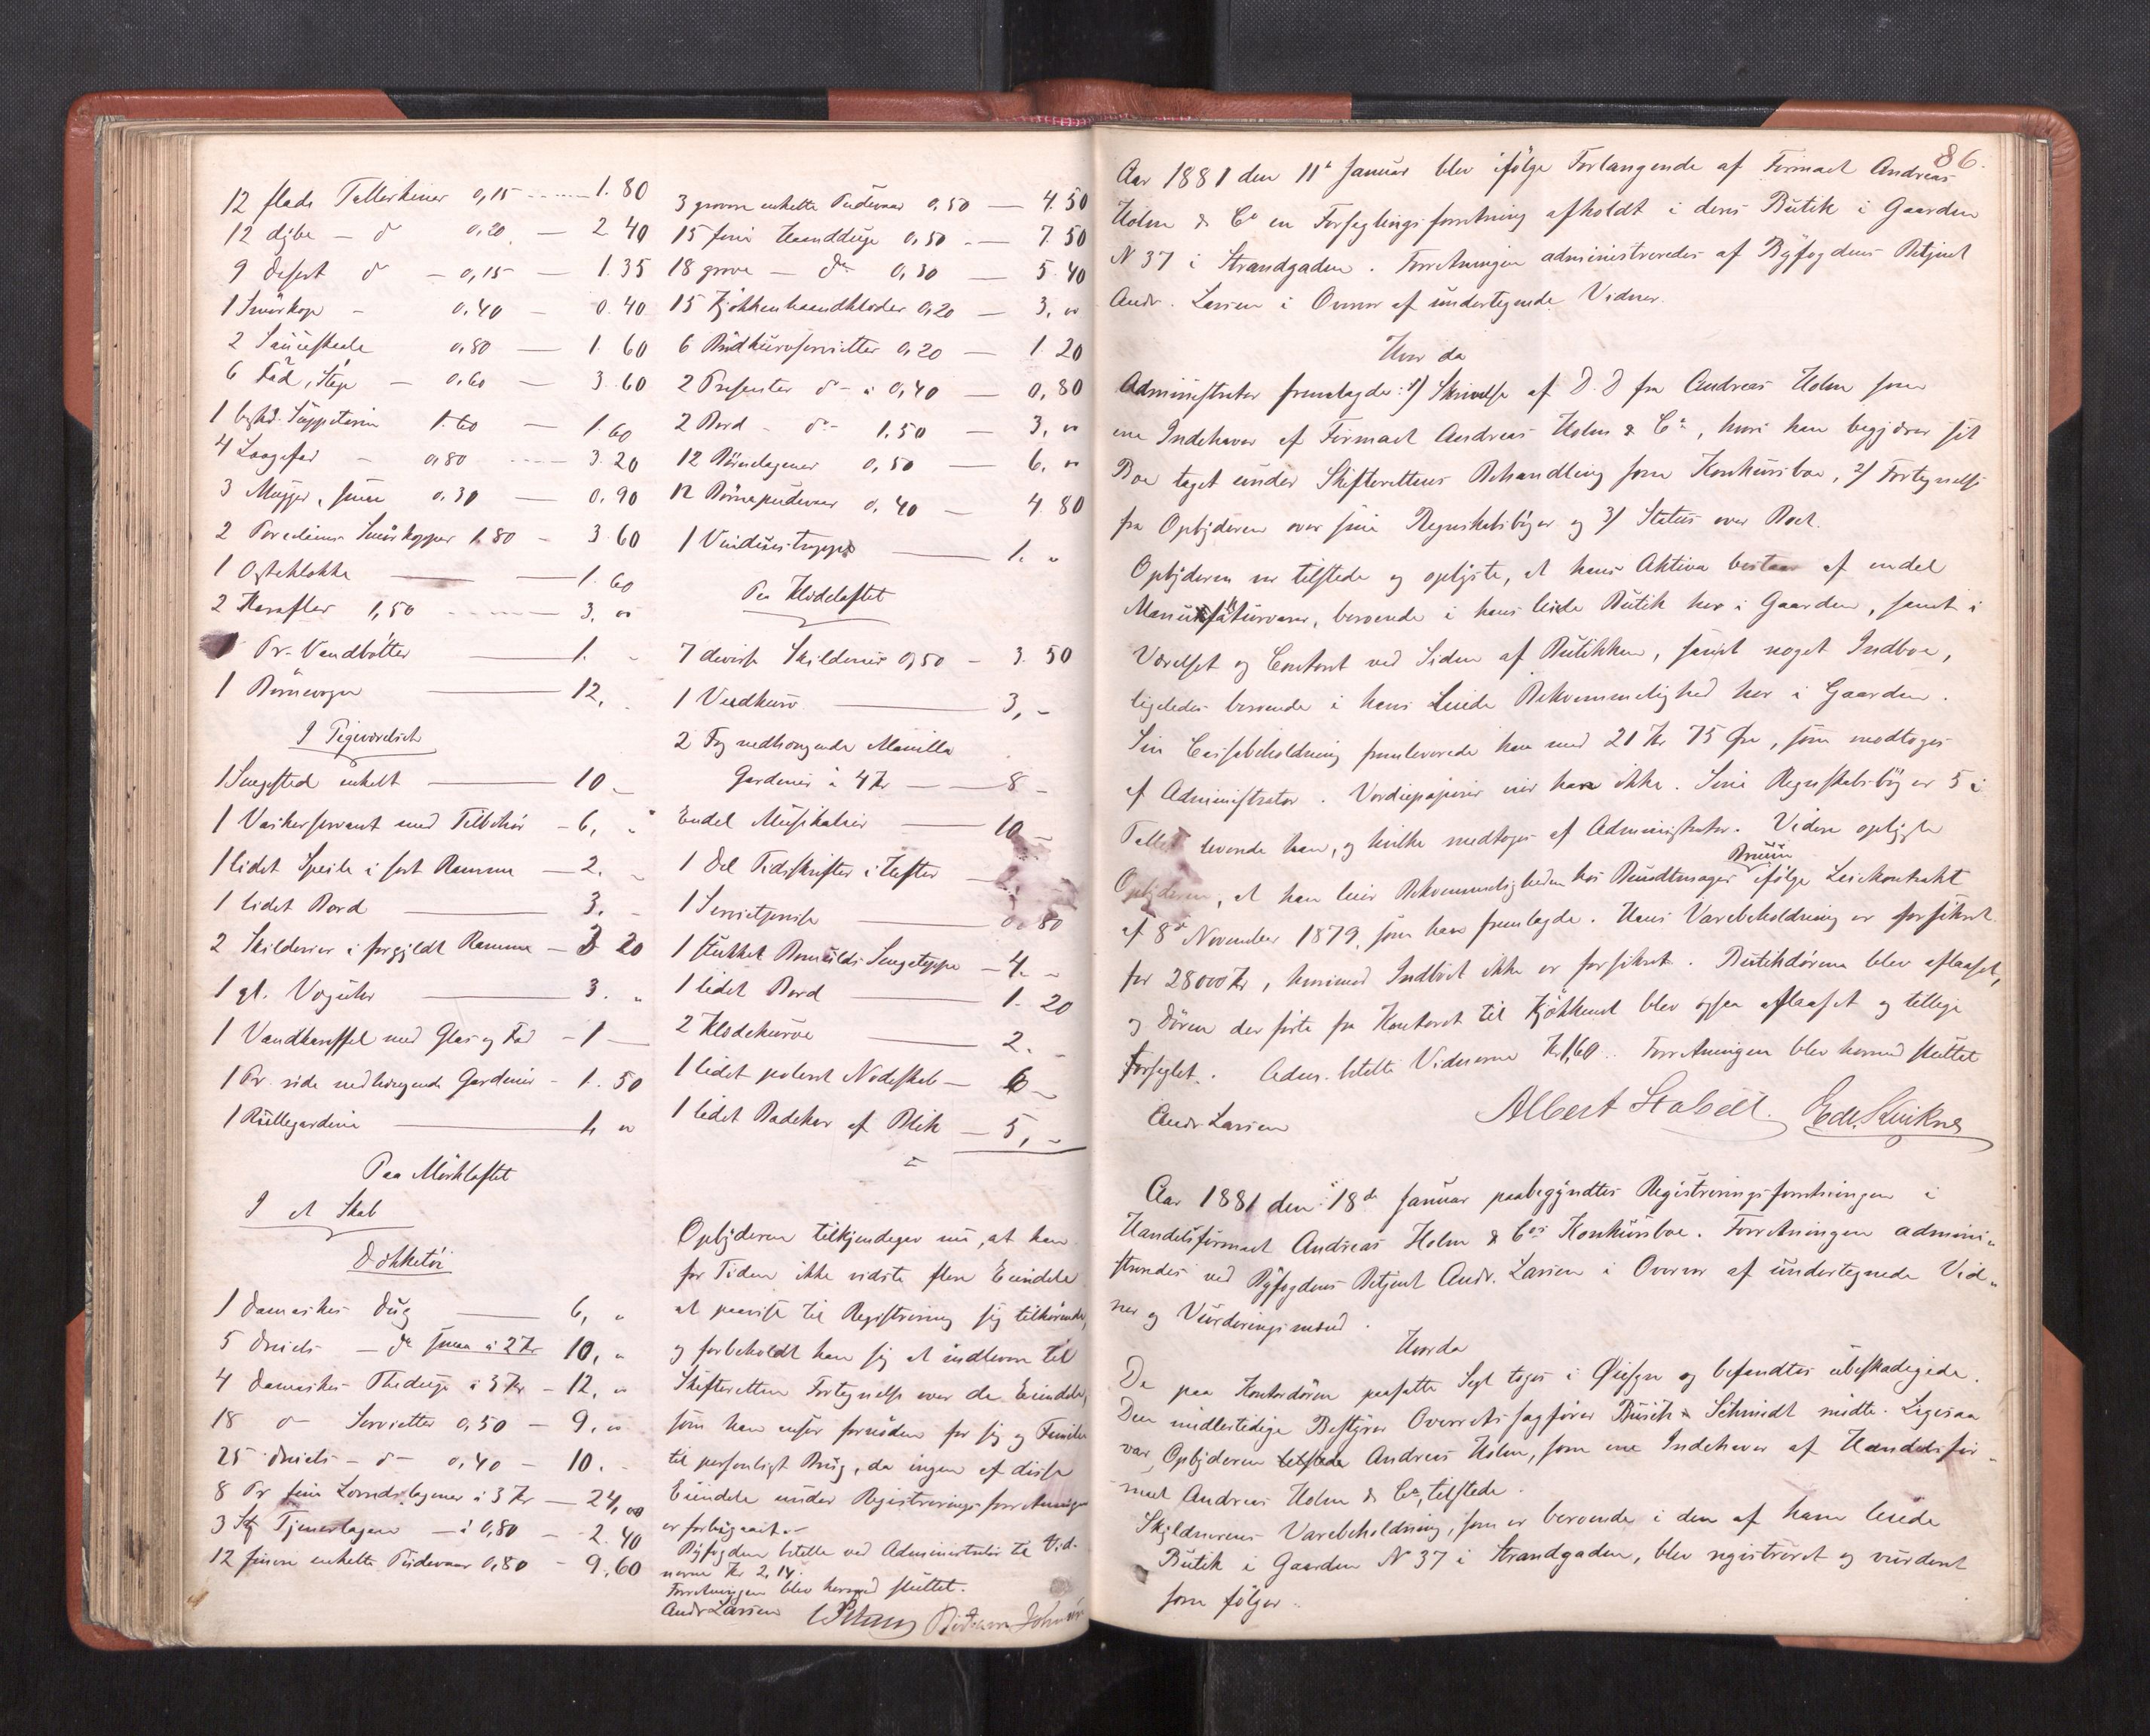 12 flade Tallerkener 0,15 1.80
12 dybe - do 0,20 - 2 40
9 desert do - 0,15 - 1.35
1 Smørkop - 0,40 - 0.40
2 Sauseskaale 0,80 — 1. 60
6 Fad, Steg - 0.60 — 3.60
1 Suppeterin 1.60 — 1.60
4 Laagefad - 0,80 3.20
3 Mugger, smaa 0.30 — 0.90
2 Porcelains Smørkopper 1.80 - 3.60
1 Osteklokke — 1.60
2 Karafler 1,50 - 3, "
Pr. Vandbøtter — 1. -
1 Børnevogn — 12, -
I Pigeværelset
1 Sengested enkelt — 10 -
1 Vaskeservant med Tilbehør - 6, "
1 lidet Speile i sort Ramme — 2. -
1 lidet Bord — 3. -
2 Skilderier i forgyldt Ramme — 3 20
1 gl. Væguhr — 3. "
1 Vandkaraffel med Glas og Fad - 1 —
1 Pr. nedhængende Gardiner - 1. 50
1 Rullegardin — 1, "
Paa Mørkloftet
I et Skab
Dækketøi
1 Damaskes Dug — 6, "
5 Dreiels — do smaa à 2 Kr 10, "
4 Damaskes Theduge à 3 Kr - 12, "
18 do Servietter 0,50 - 9, "
25 Dreiels - do - 0,40 - 10. -
8 Pr fine Lærredslagener à 3 Kr — 24, "
3 Stk Tjenerlagener — à 0,80 - 2.40
12 finere enkelte Pudevaar 0,80 - 9,60
3 grovere enkelte Pudevaar 0,50 — 4.50
15 fine Haandduge 0,50 - 7.50
18 grove — do 0,30 — 5.40
15 Kjøkkenhaandklæder 0,20 — 3, "
6 Brødkurvservietter 0,20 — 1.20
2 Presenter do - à 0,40 — 0,80
2 Bord - do - 1,50 — 3, "
12 Børnelagener 0,50 — 6, "
12 Børnepudevaar 0,40 — 4.80
1 Vinduestrappe — 1. "
Paa Klædeloftet
7 diverse Skilderier 0,50 - 3.50
1 Vedkurv — 3, -
2 Fag nedhængende Manilla
Gardiner à 4 Kr — 8 -
Endel Musikalier — 10 -
1 Del Tidsskrifter i Hefter —
1 Servietpresse — 0.80
1 stukket Bomulds Sengeteppe — 4. -
1 lidet Bord — 1. 20
2 Klædekurve — 2. -
1 lidet poleret Nodeskab — 6 -
1 lidet Badekar af Blik — 5, -
Opbyderen tilkjendegav nu, at han
for Tiden ikke vidste flere Eiendele
at paavise til Registrering sig tilhørende,
og forbeholdt han sig at indlevere til
Skifteretten Fortegnelse over de Eiendele,
som han anser fornøden for sig og Familie
til personligt Brug, da ingen af disse
Eiendele under Registreringsforretningen
er forbigaaet.-
Byfogden betalte ved Administrator til Vid-
nerne Kr 2,14.
Forretningen blev hermed sluttet.
Andr Larsen
86.
Aar 1881 den 11te Januar blev ifølge Forlangende af Firmaet Andreas
Holm & Co en Forseglingsforretning afholdt i deres Butik i Gaarden
N 37 i Strandgaden. Forretningen administreredes af Byfogdens Betjent
Andr. Larsen i Overvær af undertegnede Vidner.
Hvor da
Administrator fremlagde: 1/ Skrivelse af D.D fra Andreas Holm som
ene Indehaver af Firmaet Andreas Holm & Co, hvori han begjærer sit
Boe taget under Skifterettens Behandling som Konkursboe, 2/ Fortegnelse
fra Opbyderen over sine Regnskabsbøger og 3/ Status over Boet.
Opbyderen var tilstede og oplyste, at hans Aktiva bestaar af endel
Manufakturvarer, beroende i hans leiede Butik her i Gaarden, samt i
Værelset og Contoret ved Siden af Butikken, samt noget Indboe,
ligeledes beroende i hans leiede Bekvemmelighed her i Gaarden.
Sin Cassabeholdning fremleverede han med 21 Kr 75 Øre, som modtoges
af Administrator. Værdipapirer eier han ikke. Sine Regnskabsbøger 5 i
Tallet leverede han, og hvilke modtoges af Administrator. Videre oplyste
Opbyderen, at han leier Bekvemmeligheden hos Bundtmager Bruun ifølge Leiekontrakt
af 8de November 1879, som han fremlagde. Hans Varebeholdning er forsikret
for 28000 Kr, hvorimod Indboet ikke er forsikret. Butikdørene blev aflaaset,
og Døren der førte fra Kontoret til Kjøkkenet blev ogsaa aflaaset og tillige
forseglet. Adm. betalte Vidnerne Kr 1,60. Forretningen blev hermed sluttet
Andr Larsen Albert Stabell.
Aar 1881 den 18de Januar paabegyndtes Registreringsforretningen i
Handelsfirmaet Andreas Holm & Cos Konkursboe. Forretningen admini-
streredes ved Byfogdens Betjent Andr. Larsen i Overvær af undertegnede Vid-
ner og Vurderingsmænd.
Hvorda
De paa Kontordøren paasatte Segl toges i Øiesyn og befandtes ubeskadigede.
Den midlertidige Bestyrer Overretssagfører Busch Schmidt mødte. Ligesaa
var Opbyderen tilstede Andreas Holm, som ene Indehaver af Handelsfir-
maet Andreas Holm & Co, tilstede.
Skyldnerens Varebeholdning, som er beroende i den af ham leiede
Butik i Gaarden No 37 i Strandgaden, blev registreret og vurderet
som følger: